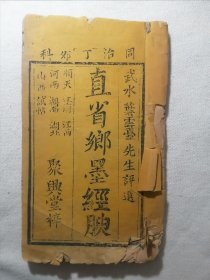 同治丁卯科
武水熊雲臺先生評選
直省鄉墨經腴
順天 江南 江西
河南 湖南 湖北
山西 試帖
聚興堂梓